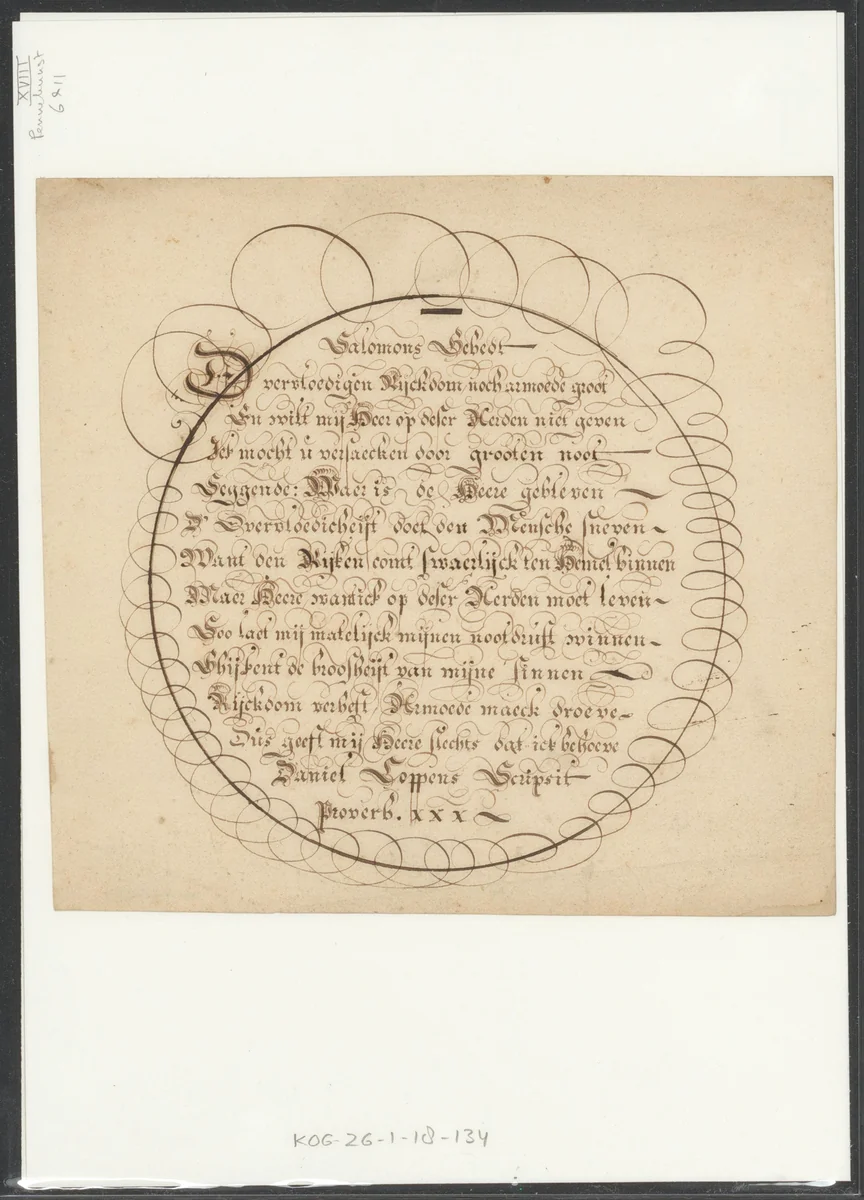 XVIII
Pennekunst
6 & 11
Salomons Gebedt
Overvloedigen Rijckdom noch armoede groot
En wilt mij Heer op deser Aerden niet geven
Ick mocht u versaecken door grooten noot
Seggende: Waer is de Heere gebleven
D' Overvloedicheijt doet den Mensche sneven
Want den Rijken comt swaerlijck ten Hemel binnen
Maer Heere wan ick op deser Aerden moet leven
Soo laet mij matelijck mijnen nootdruft winnen
Ghij kent de broosheijt van mijne sinnen
Rijckdom verheft Armoede maeck droeve
Dus geeft mij Heere slechts dat ick behoeve
Daniel Coppens Scripsit
Proverb. xxx
KOG-ZG-1-18-134